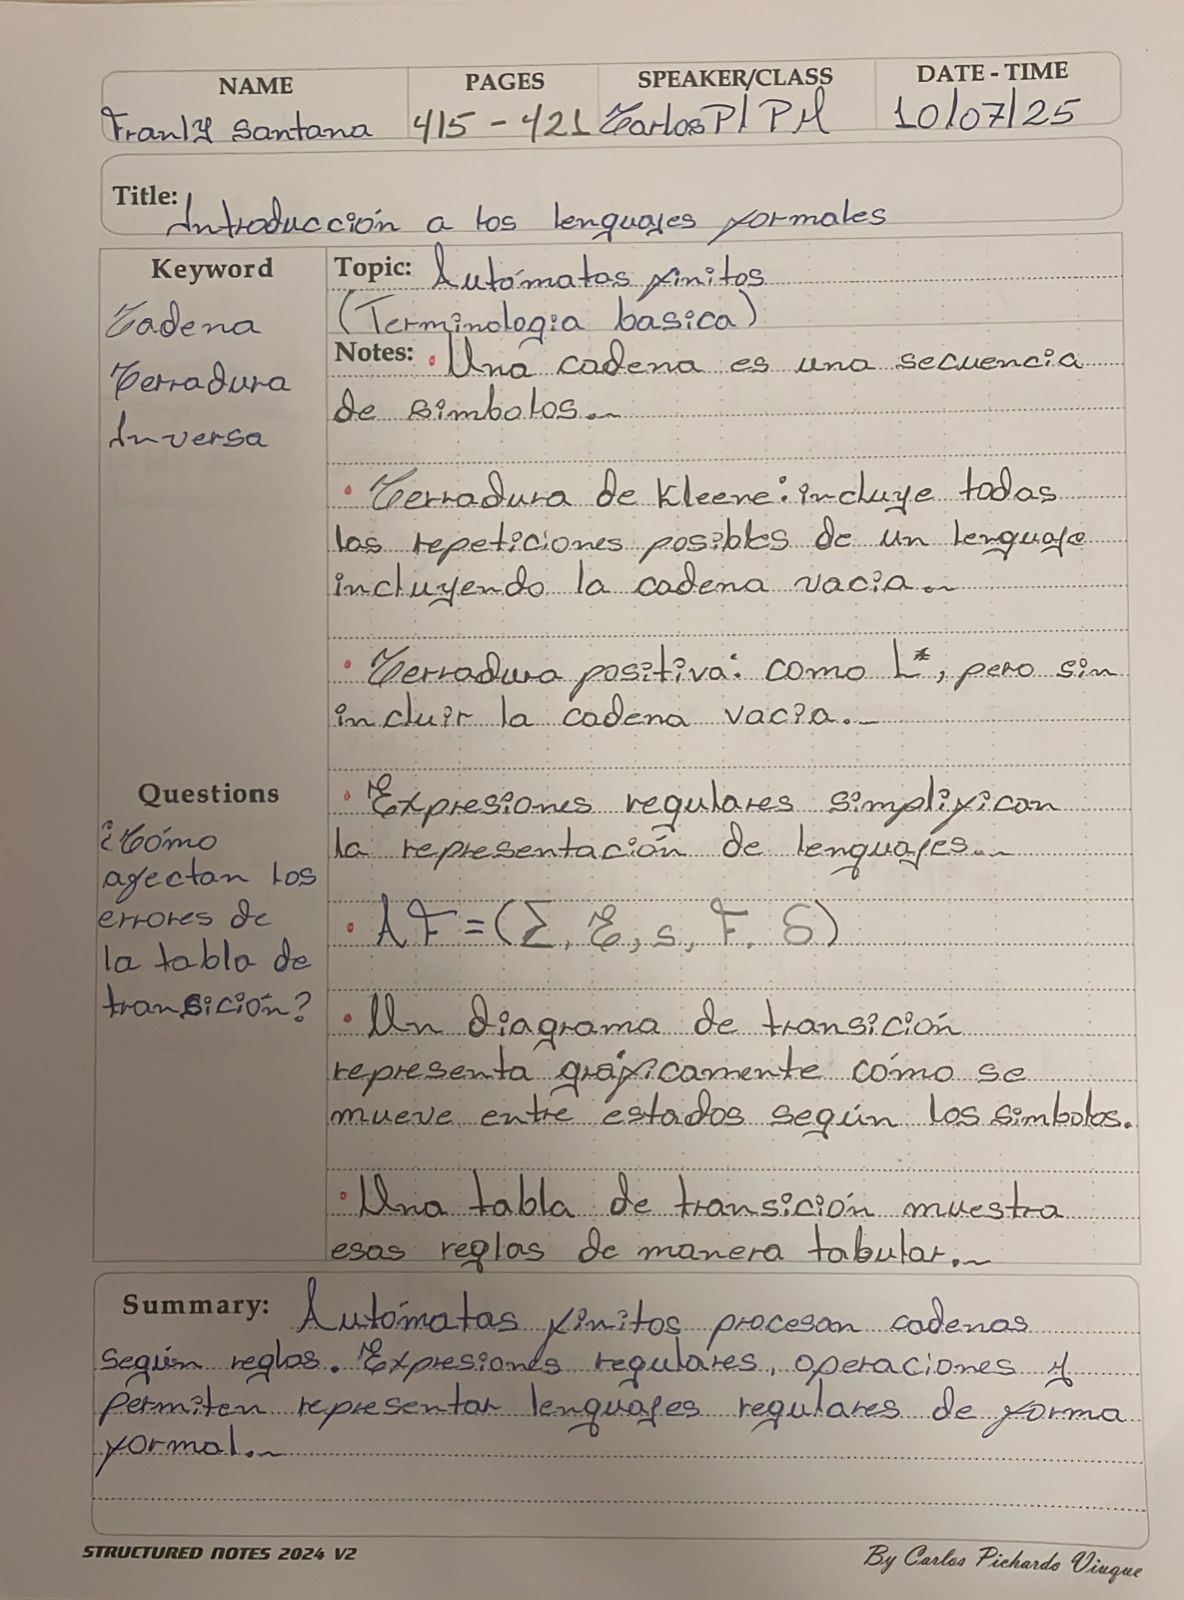 NAME PAGES SPEAKER/CLASS DATE - TIME
Franly Santana 415 - 421 Carlos P/ PM 10/07/25
Title: Introducción a los lenguajes formales
Keyword
Cadena
Cerradura
Inversa
Topic: Autómatas finitos
(Terminologia basica)
Notes: • Una cadena es una secuencia
de simbolos.
• Cerradura de Kleene: incluye todas
las repeticiones posibles de un lenguaje
incluyendo la cadena vacia.
• Cerradura positiva: como L*, pero sin
incluir la cadena vacia.
• Expresiones regulares simplifican
la representación de lenguajes.
• AF = (Σ, E, s, F, δ)
• Un diagrama de transición
representa gráficamente cómo se
mueve entre estados según los simbolos.
• Una tabla de transición muestra
esas reglas de manera tabular.
Questions
¿Cómo
afectan los
errores de
la tabla de
transición?
Summary: Autómatas finitos procesan cadenas
según reglas. Expresiones regulares, operaciones y
permiten representar lenguajes regulares de forma
formal.
STRUCTURED NOTES 2024 V2
By Carlos Pichardo Viuque